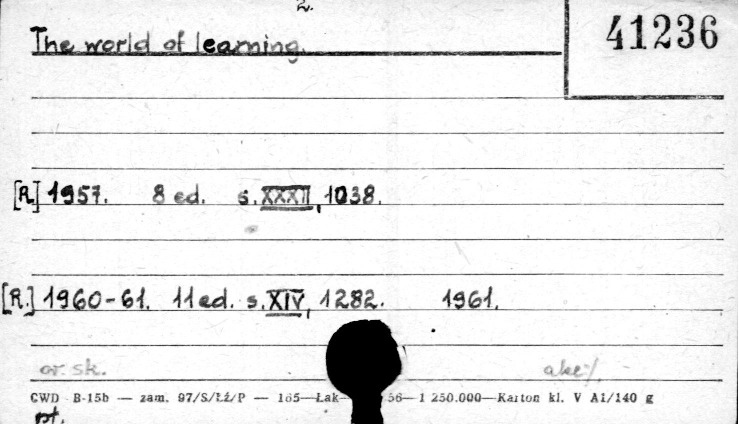 2.
The world of learning.
41236
[R] 1957. 8 ed. s. XXXII, 1038.
[R.] 1960-61. 11 ed. s. XIV, 1282. 1961.
or. sk.
CWD B-15b — zam. 97/S/Łź/P — 165—Łak— 56—1 250.000—Karton kl. V A1/140 g
pt.